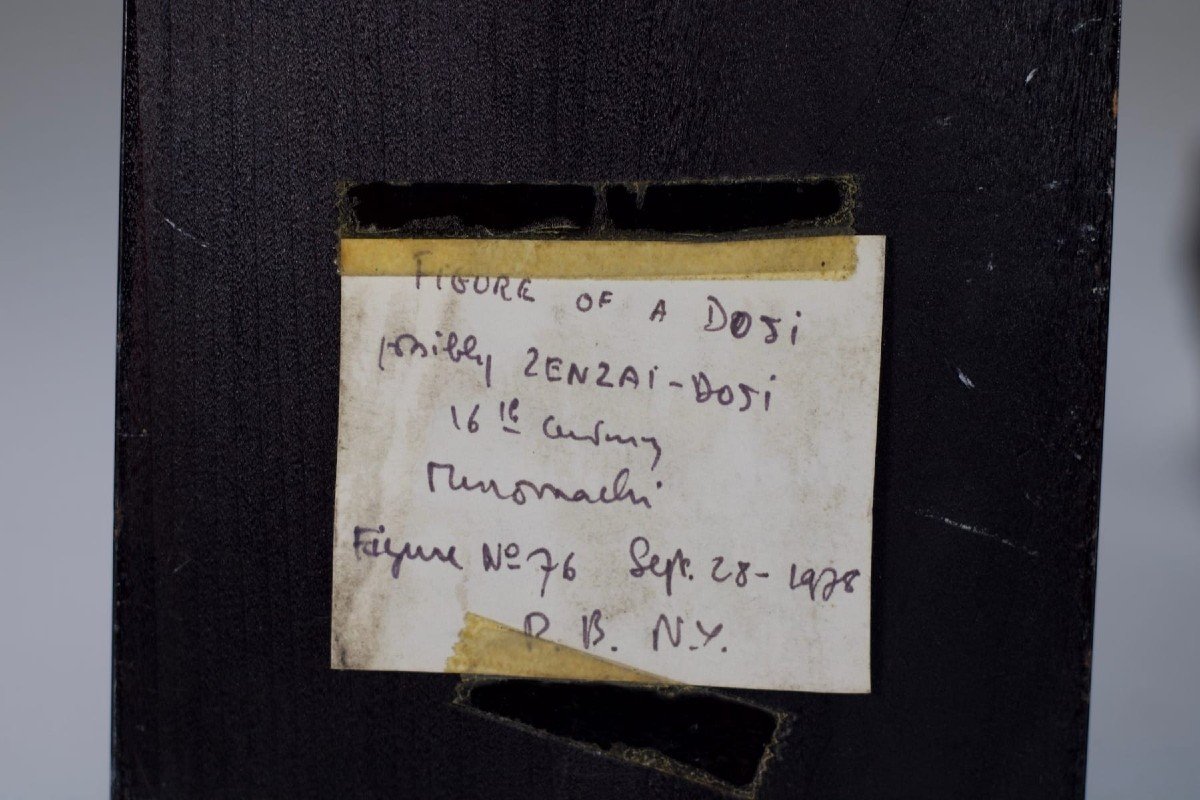 FIGURE OF A DOJi
possibly ZENZAi-DOJi
16th Century
Muromachi
Figure No 76 Sept. 28-1978
P. B. N.Y.